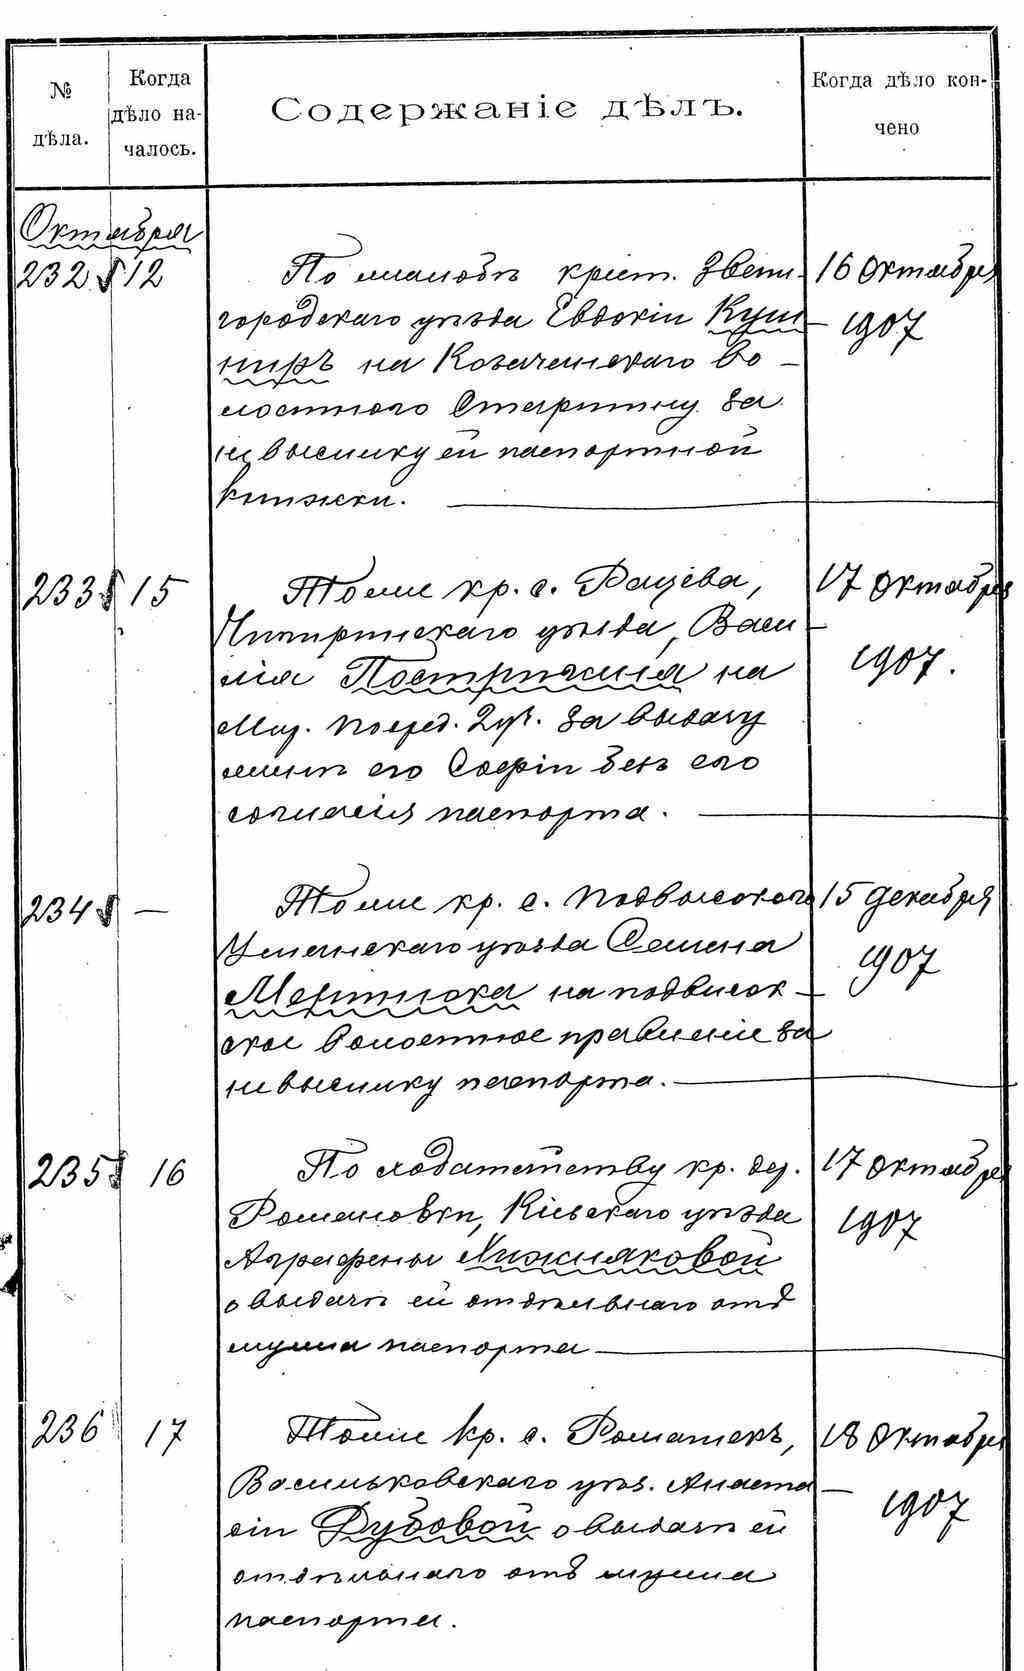 №
дѣла.
Когда
дѣло на-
чалось.
Содержаніе дѣлъ.
Когда дѣло кон-
чено
Октября
232 12
По жалобѣ крест. Звени-
городскаго уѣзда Евдокіи Куш-
ниръ на Козачанскаго во-
лостного Старшину за
невысылку ей паспортной
книжки.
16 Октября
1907
233 15
Тоже кр. с. Рацева,
Чигиринскаго уѣзда, Васи-
лія на
Мир. Посред. 2 уч. за выдачу
женѣ его Софіи безъ его
согласія паспорта.
17 Октября
1907.
234 —
Тоже кр. с. Подвысокого
Уманскаго уѣзда Семена
на подвысоц-
кое волостное правленіе за
невысылку паспорта.
15 декабря
1907
235 16
По ходатайству кр. дер.
Романовки, Кіевскаго уѣзда
Аграфены Хижняковой
о выдачѣ ей отдѣльнаго отъ
мужа паспорта
17 Октября
1907
236 17
Тоже кр. с. Ромашекъ,
Васильковскаго уѣз. Анаста-
сіи Дубовой о выдачѣ ей
отдѣльнаго отъ мужа
паспорта.
18 Октября
1907